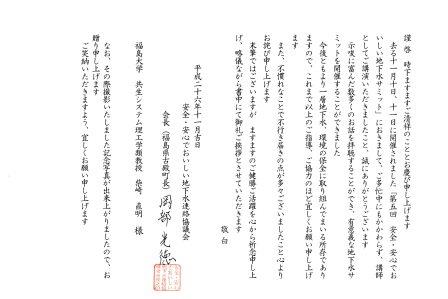 謹啓 時下ますますご清祥のこととお慶び申し上げます
去る十一月十日、十一日に開催されました「第五回 安全・安心でお
いしい地下水サミット」におきまして、ご多忙中にもかかわらず、講師
としてご講演いただきましたこと、誠にありがとうございます
示唆に富んだ数多くのお話を拝聴することができ、有意義な地下水サ
ミットを開催することができました
今後ともより一層地下水、環境の保全に取り組んでまいる所存であり
ますので、これまで以上のご指導、ご協力のほど宜しくお願い申し上げ
ます
また、不慣れなことで不行き届きの点が多々ございましたこと心より
お詫び申し上げます
末筆ではございますが ますますのご健勝ご活躍を心から祈念申し上
げ、略儀ながら書中にて御礼ご挨拶とさせていただきます
敬白
平成二十六年十一月吉日
安全・安心でおいしい地下水連絡協議会
会長（福島県古殿町長）岡部光徳
福島大学 共生システム理工学類教授 柴﨑 直明 様
なお、その際撮影いたしました記念写真が出来上がりましたので、お
贈り申し上げます
ご笑納いただきますよう、宜しくお願い申し上げます